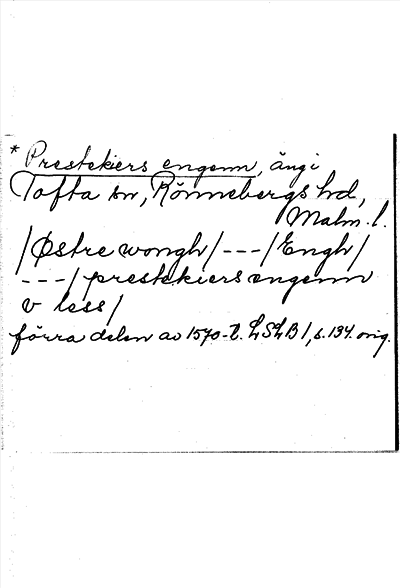 * Prestekiers engenn, äng i
Tofta sn, Rönnebergs hd,
Malm. l.
/Østre wongh/ --- /Engh/
--- /prestekiers engenn
v less/
förra delen av 1570-t. LSLB 1, s. 134. orig.